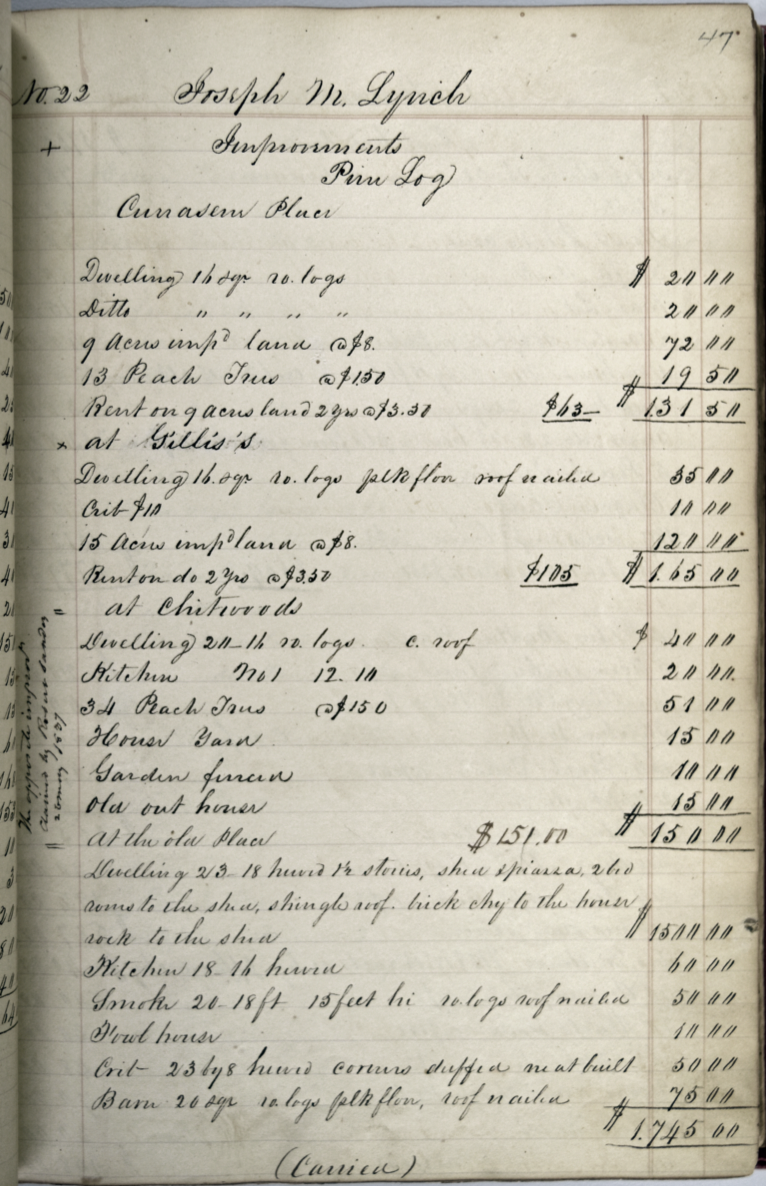 47
No. 22 Joseph M. Lynch
+ Improvments
Pine Log
Place
Dwelling 16 sqr ro. logs $ 20 00
Ditto " " " " 20 00
9 Acres imp^d land @ $8. 72 00
13 Peach Trees @ $1.50 19 50
Rent on 9 acres land 2 yrs @ $3.50 $63— $ 131 50
x at Gillis's
Dwelling 16. sqr ro. logs plk floor roof nailed 35 00
Crib $10 10 00
15 Acres imp^d land @ $8. 120 00
Rent on do 2 yrs @ $3.50 $105 $ 165 00
= at Chitwoods
Dwelling 20–16 ro. logs. c. roof $ 40 00
Kitchen No 1 12. 10 20 00
34 Peach Trees @ $1 50 51 00
House Yard 15 00
Garden fenced 10 00
Old out house 15 00
= At the old Place $151.00 $ 150 00
Dwelling 23–18 hewed 1½ stories, shed & piazza, 2 bed
rooms to the shed, shingle roof. brick chy to the house
rock to the shed $ 1500 00
Kitchen 18–16 hewed 60 00
Smoke 20–18 ft 15 feet hi ro. logs roof nailed 50 00
Fowl house 10 00
Crib 23 by 8 hewed corners duffed neat built 50 00
Barn 20 sqr ro. logs plk floor, roof nailed 75 00
$ 1.745 00
(Carried)
The opposite improts
claimed by
1837